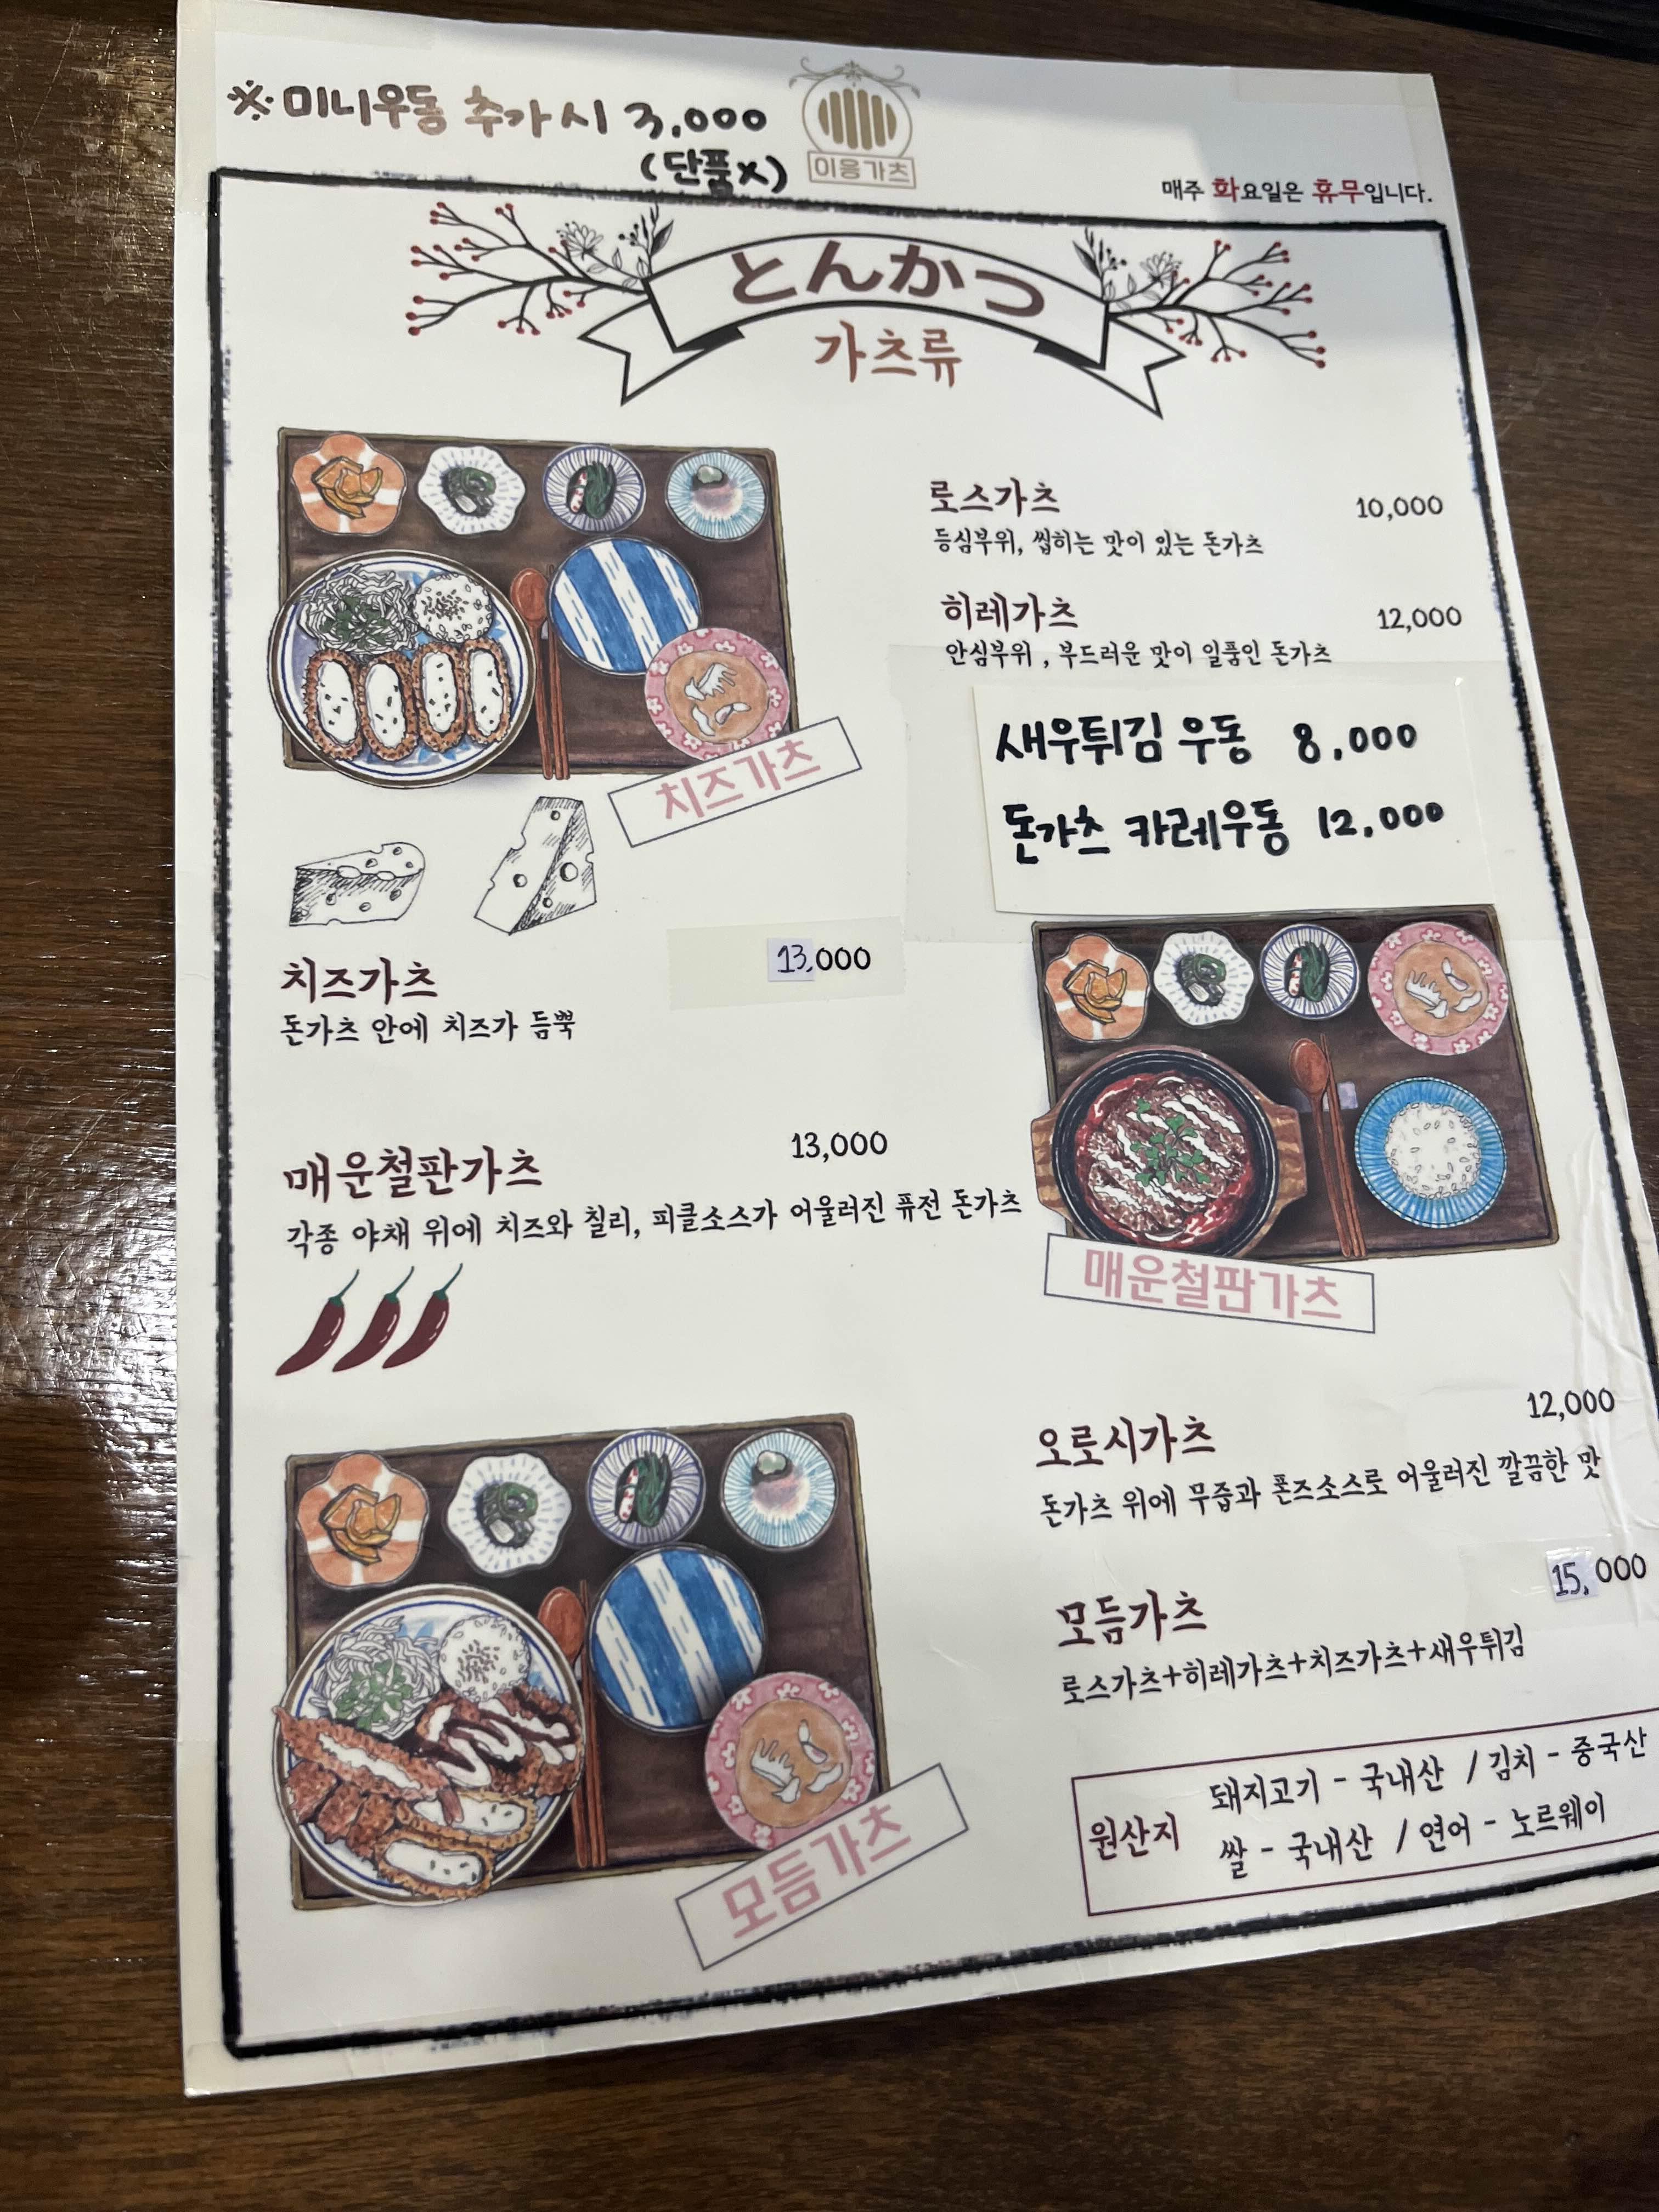 ※미니우동 추가시 3,000
(단품x)
이응가츠
매주 화요일은 휴무입니다.
とんかつ
가츠류
로스가츠 10,000
등심부위, 씹히는 맛이 있는 돈가츠
히레가츠 12,000
안심부위, 부드러운 맛이 일품인 돈가츠
새우튀김 우동 8,000
돈가츠 카레우동 12,000
치즈가츠
치즈가츠 13,000
돈가츠 안에 치즈가 듬뿍
매운철판가츠 13,000
각종 야채 위에 치즈와 칠리, 피클소스가 어울러진 퓨전 돈가츠
매운철판가츠
오로시가츠 12,000
돈가츠 위에 무즙과 폰즈소스로 어울러진 깔끔한 맛
모듬가츠 15,000
로스가츠+히레가츠+치즈가츠+새우튀김
모듬가츠
원산지
돼지고기 - 국내산 / 김치 - 중국산
쌀 - 국내산 / 연어 - 노르웨이